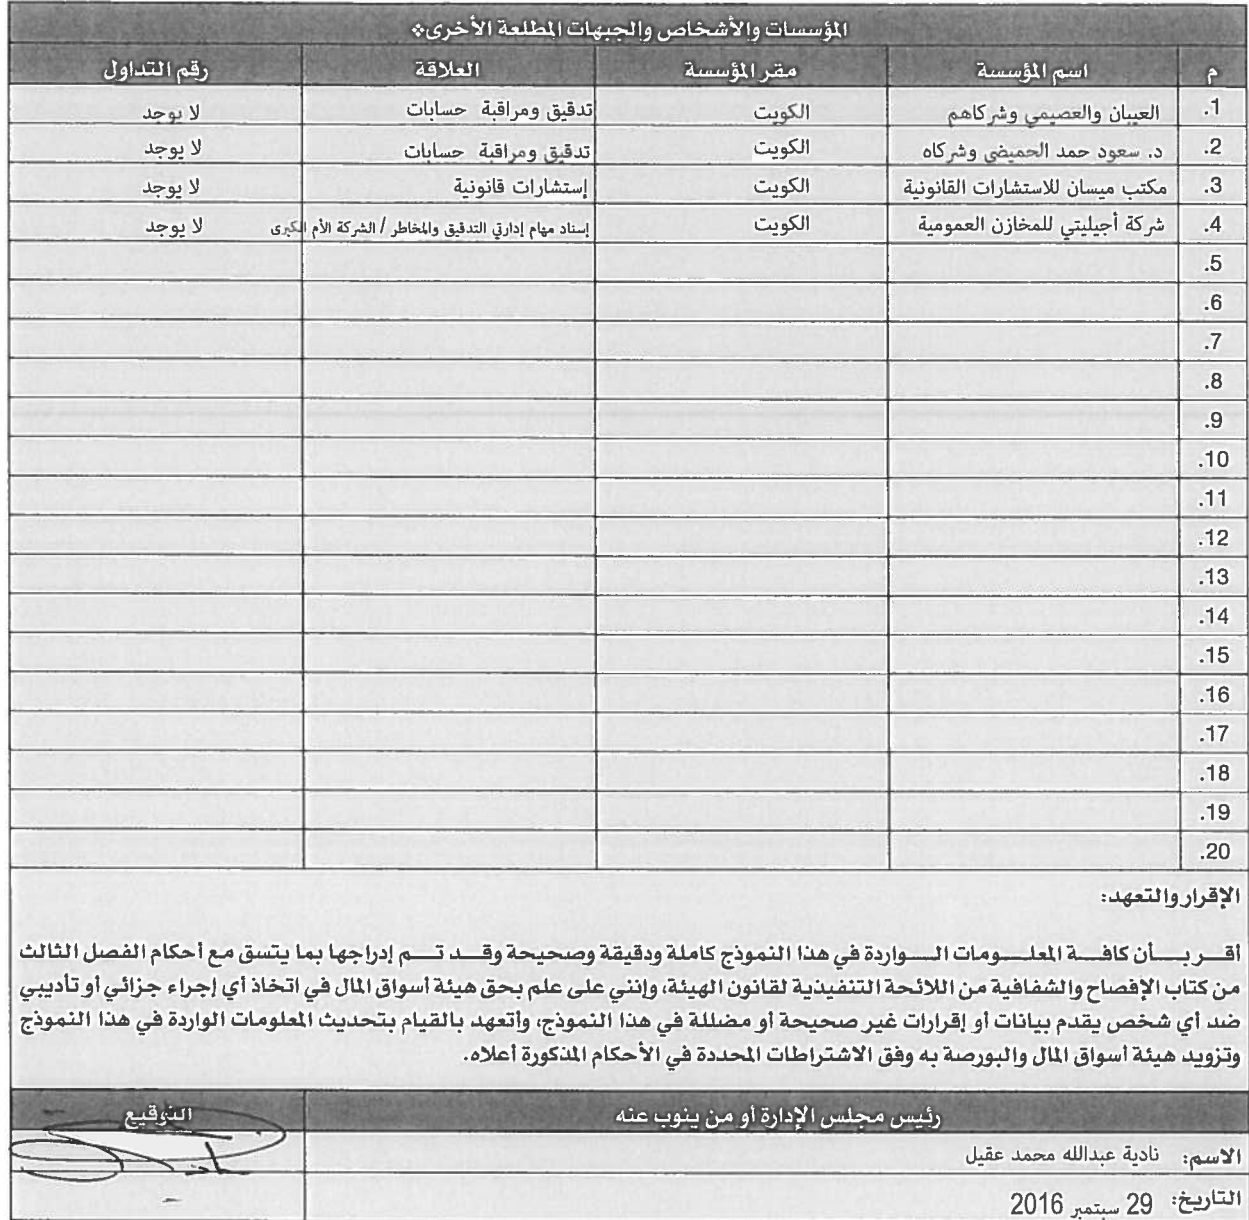 المؤسسات والأشخاص والجبهات المطلعة الأخرى*
م اسم المؤسسة مقر المؤسسة العلاقة رقم التداول
.1 العيبان والعصيمي وشركاهم الكويت تدقيق ومراقبة حسابات لا يوجد
.2 د. سعود حمد الحميضي وشركاه الكويت تدقيق ومراقبة حسابات لا يوجد
.3 مكتب ميسان للاستشارات القانونية الكويت إستشارات قانونية لا يوجد
.4 شركة أجيليتي للمخازن العمومية الكويت إسناد مهام إدارتي التدقيق والمخاطر / الشركة الأم الكبرى لا يوجد
.5
.6
.7
.8
.9
.10
.11
.12
.13
.14
.15
.16
.17
.18
.19
.20
الإقرار والتعهد:
أقر بأن كافة المعلومات الواردة في هذا النموذج كاملة ودقيقة وصحيحة وقد تم إدراجها بما يتسق مع أحكام الفصل الثالث
من كتاب الإفصاح والشفافية من اللائحة التنفيذية لقانون الهيئة، وإنني على علم بحق هيئة أسواق المال في اتخاذ أي إجراء جزائي أو تأديبي
ضد أي شخص يقدم بيانات أو إقرارات غير صحيحة أو مضللة في هذا النموذج، وأتعهد بالقيام بتحديث المعلومات الواردة في هذا النموذج
وتزويد هيئة أسواق المال والبورصة به وفق الاشتراطات المحددة في الأحكام المذكورة أعلاه.
رئيس مجلس الإدارة أو من ينوب عنه التوقيع
الاسم: نادية عبدالله محمد عقيل
التاريخ: 29 سبتمبر 2016